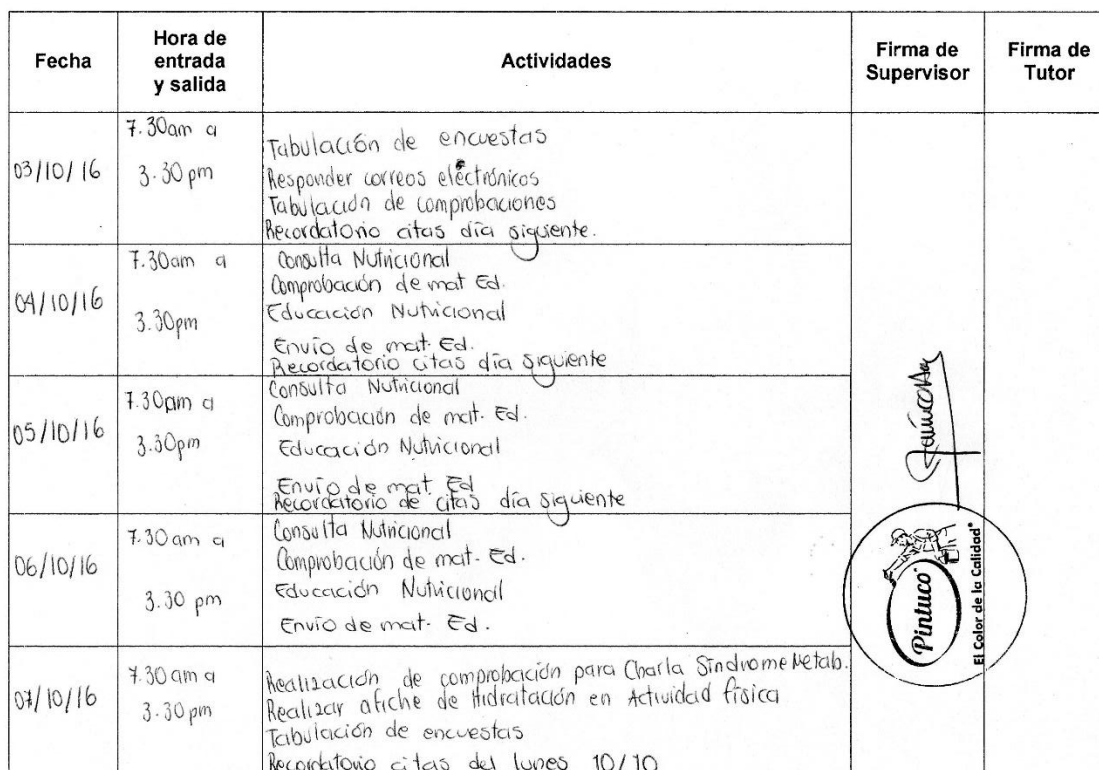 Fecha
Hora de
entrada
y salida
Actividades
Firma de
Supervisor
Firma de
Tutor
03/10/16
7.30am a
3.30 pm
Tabulación de encuestas
Responder correos electrónicos
Tabulación de comprobaciones
Recordatorio citas día siguiente.
04/10/16
7.30am a
3.30pm
Consulta Nutricional
Comprobación de mat Ed.
Educación Nutricional
Envío de mat. Ed.
Recordatorio citas día siguiente
05/10/16
7.30am a
3.30pm
Consulta Nutricional
Comprobación de mat. Ed.
Educación Nutricional
Envío de mat. Ed
Recordatorio de citas día siguiente
06/10/16
7.30 am a
3.30 pm
Consulta Nutricional
Comprobación de mat. Ed.
Educación Nutricional
Envío de mat. Ed.
Pintuco
El Color de la Calidad
07/10/16
7.30 am a
3.30 pm
Realización de comprobación para Charla Síndrome Metab.
Realizar afiche de Hidratación en Actividad física
Tabulación de encuestas
Recordatorio citas del lunes 10/10